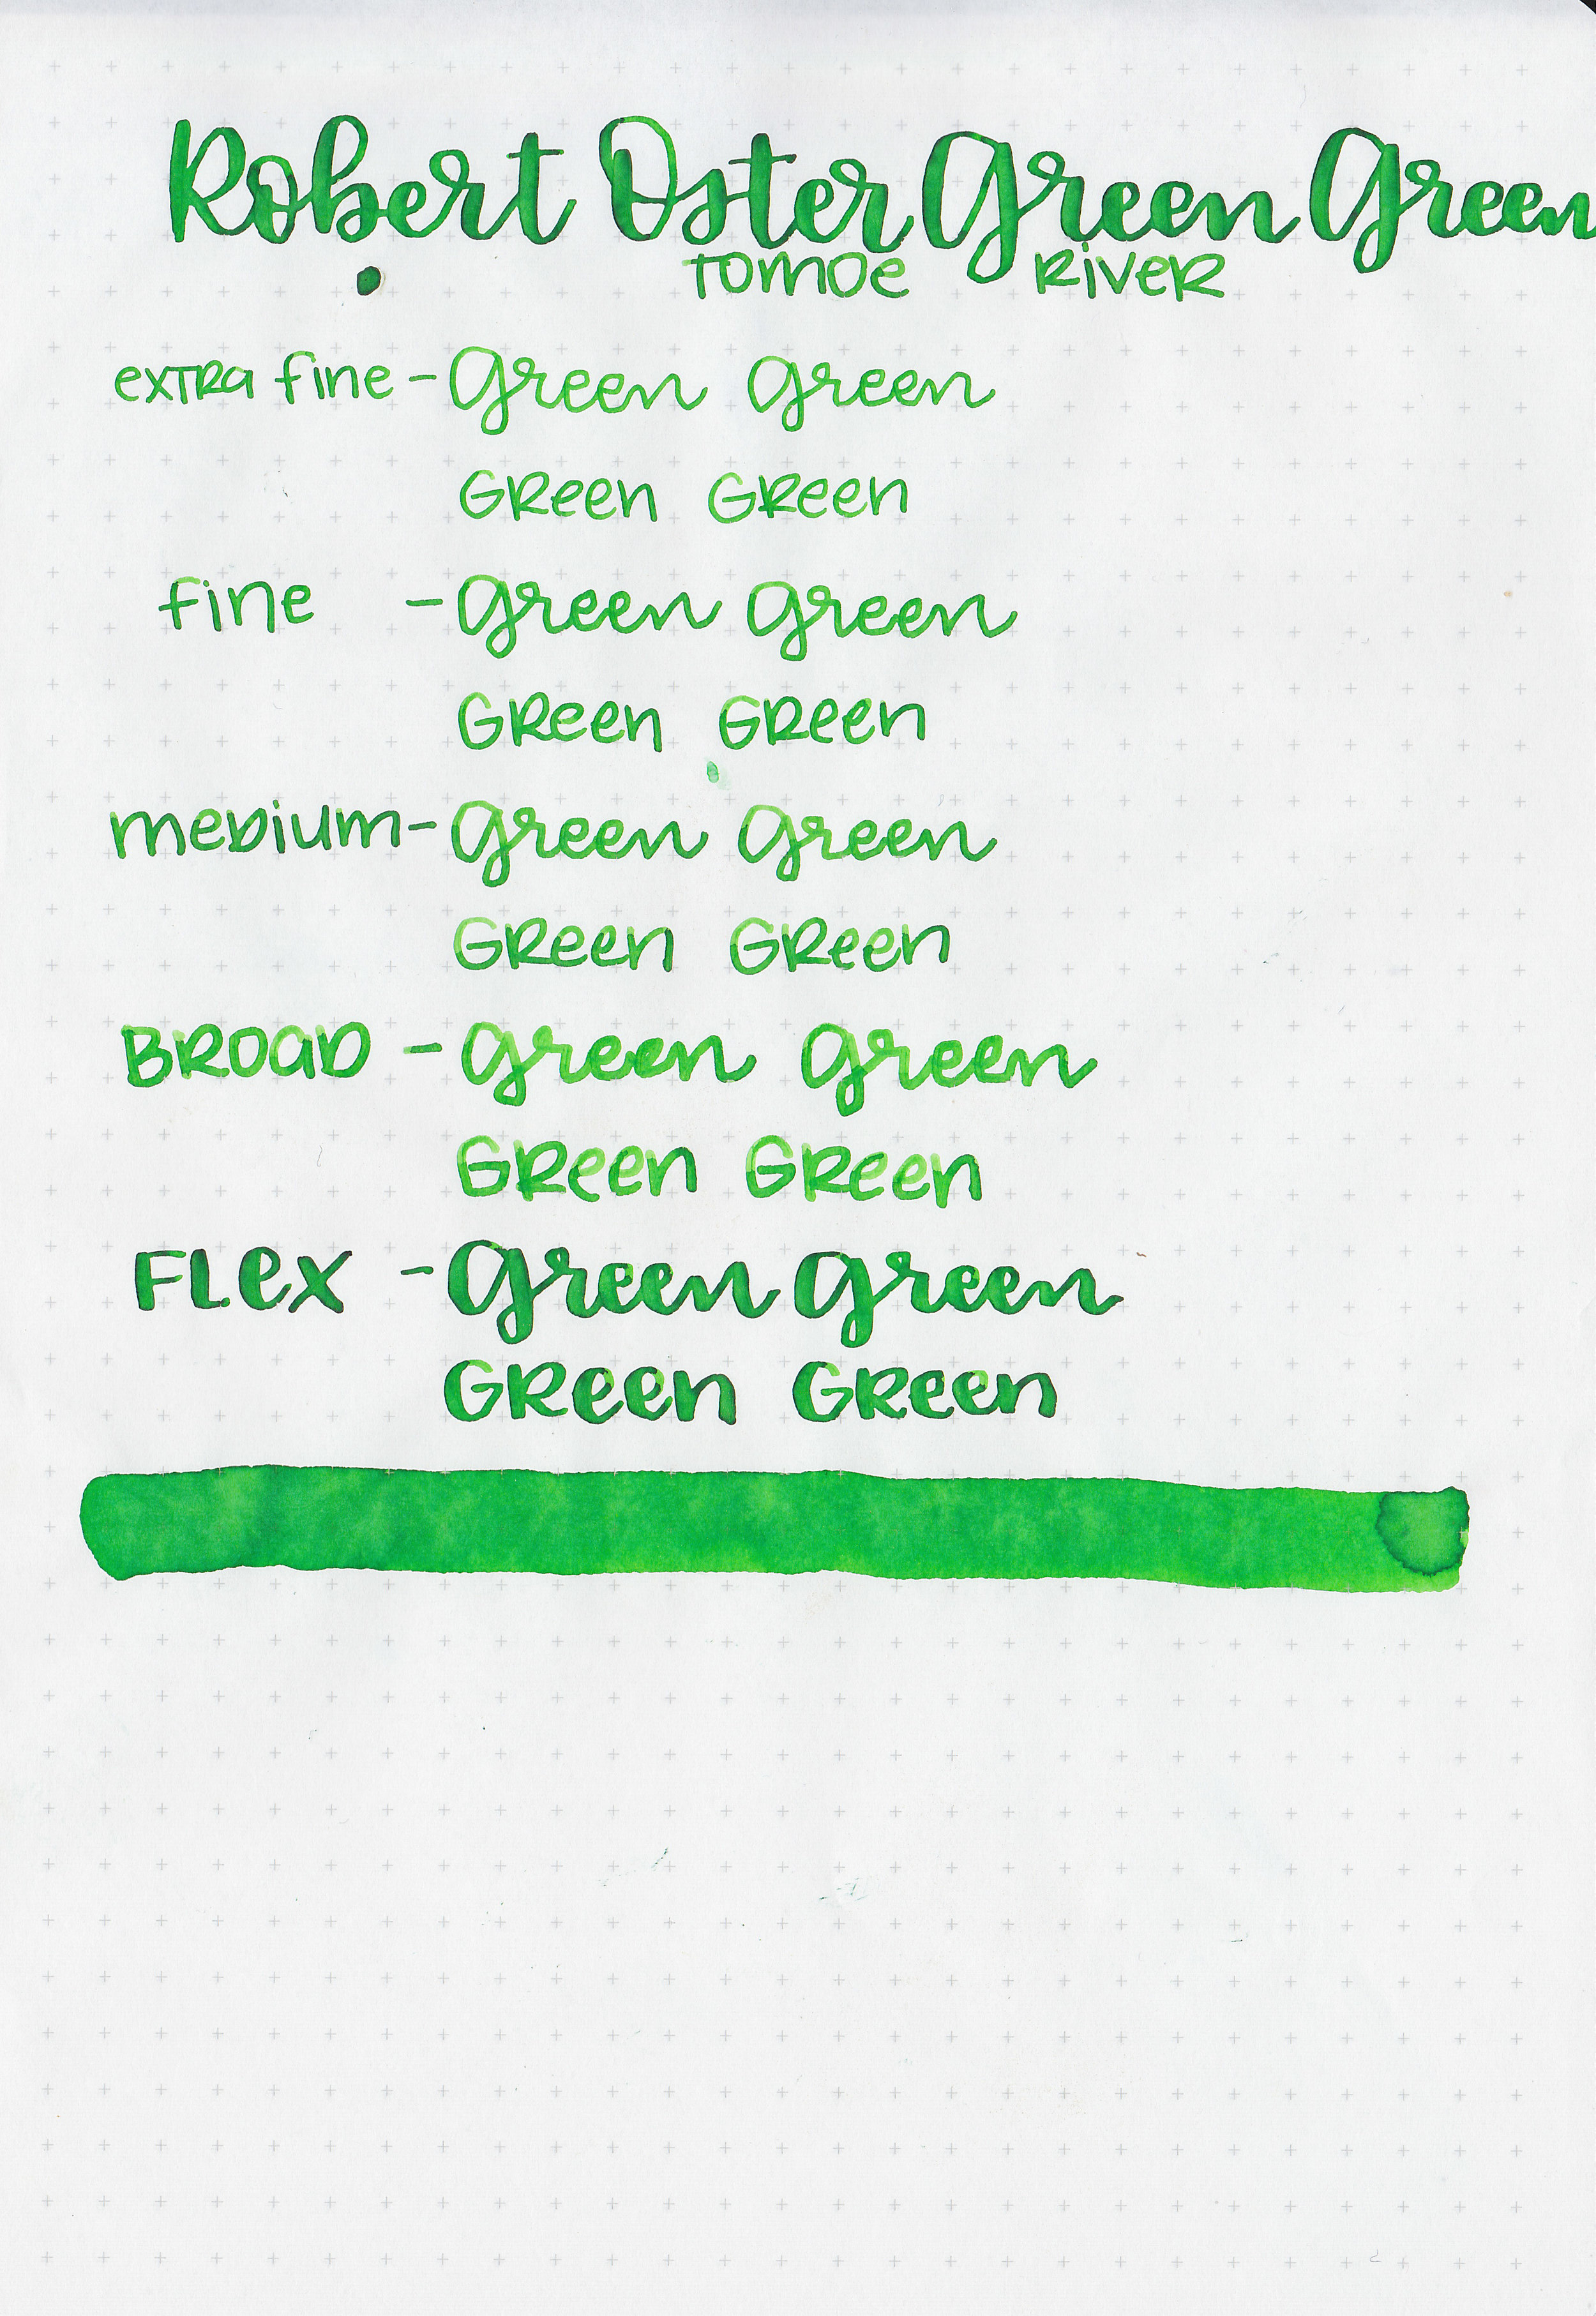 Robert Oster Green Green
Tomoe River
extra fine - Green Green
Green Green
fine - Green Green
Green Green
medium - Green Green
Green Green
Broad - Green Green
Green Green
Flex - Green Green
Green Green